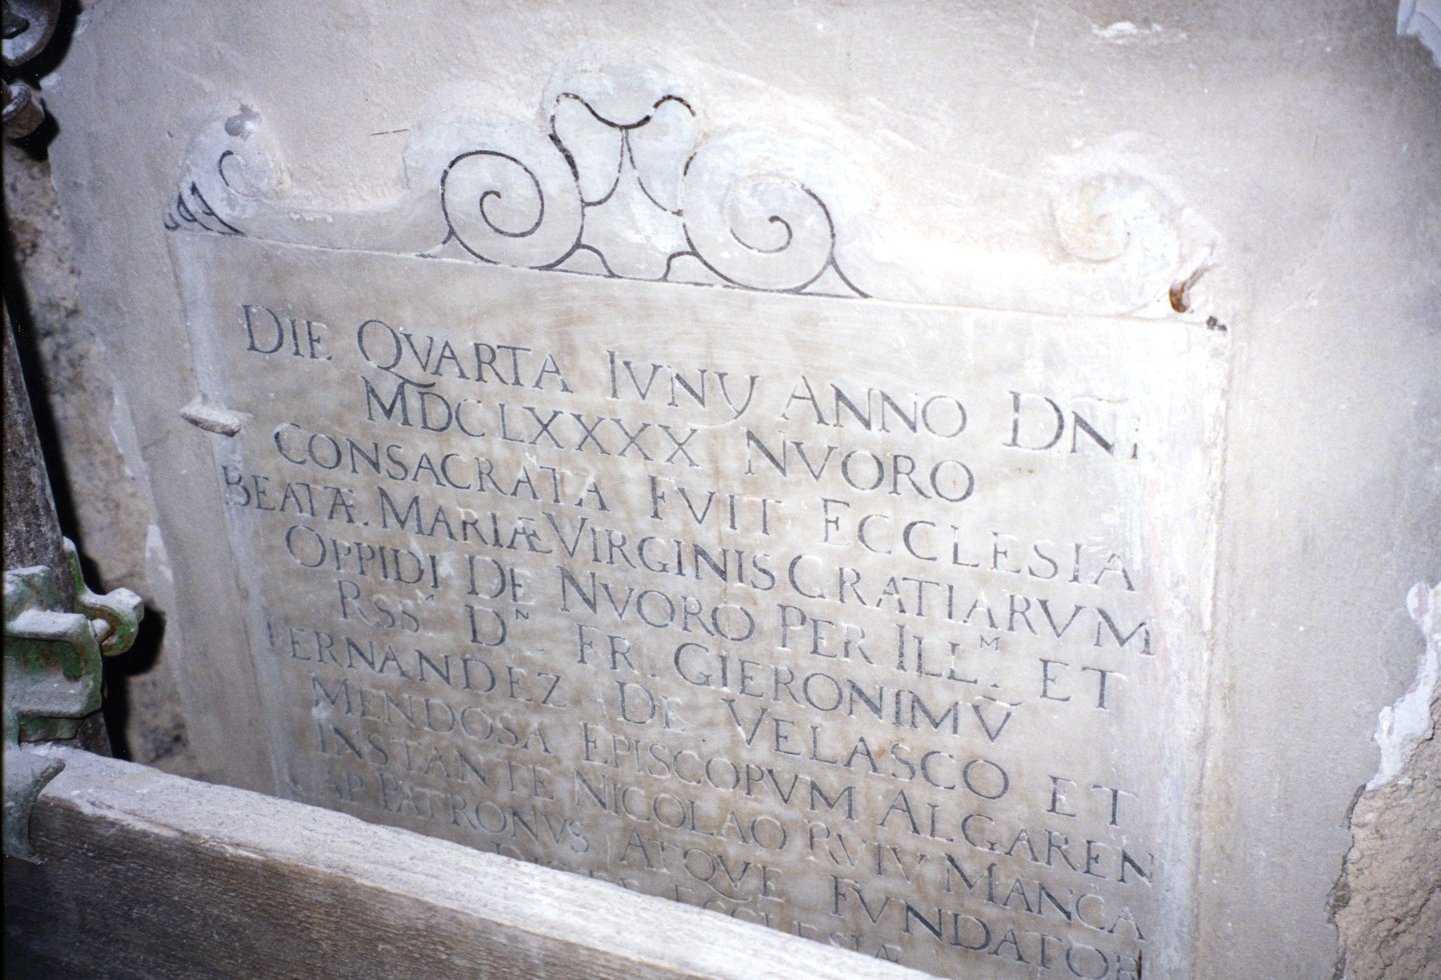 DIE QVARTA IVNY ANNO DÑI
M̃DCLXXXX NVORO
CONSACRATA FVIT ECCLESIA
BEATÆ. MARIÆ VIRGINIS GRATIARVM
OPPIDI DE NVORO PER ILL.ᴹ ET
RSS.ᴹ D.ᴺ FR. GIERONIMV̄
FERNANDEZ DE VELASCO ET
MENDOSA EPISCOPVM ALGAREN
INSTANTE NICOLAO RVIV MANCA
CAP PATRONVS ATQVE FVNDATOR
ECCLESIÆ